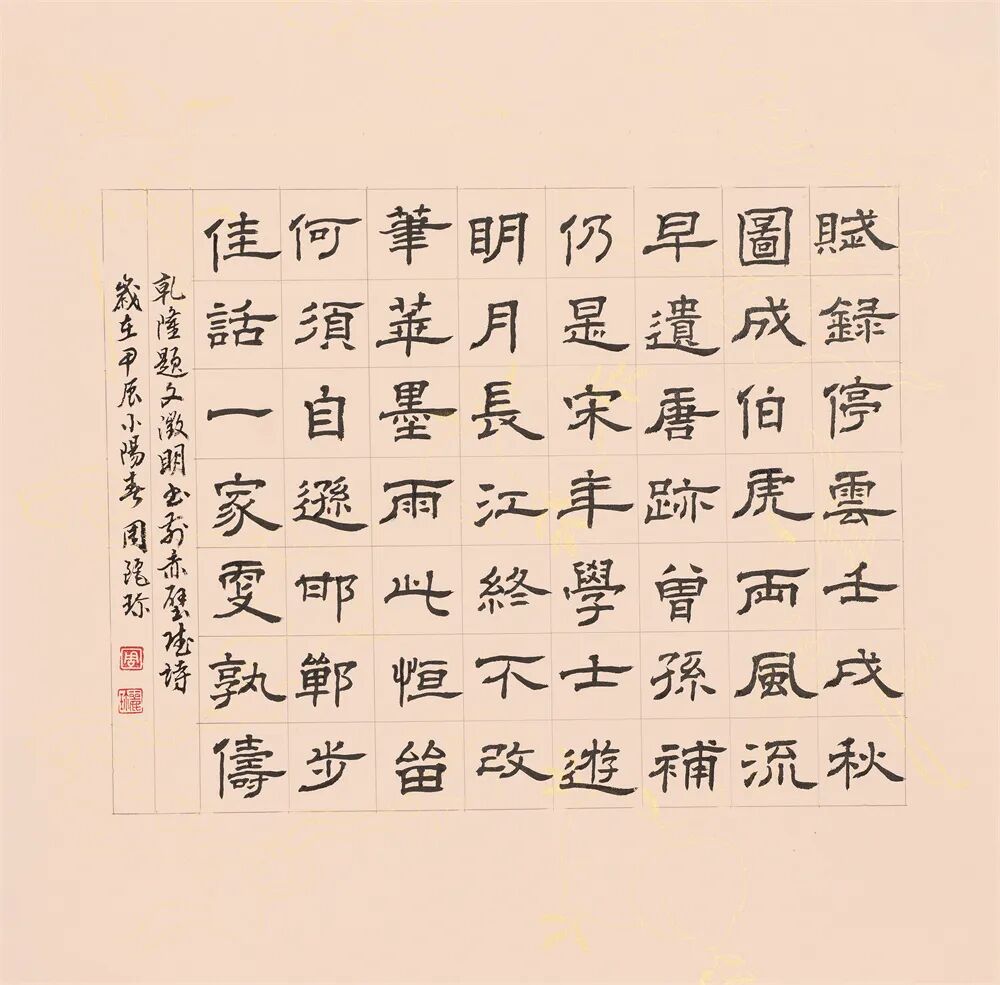 賦録停雲壬戌秋
圖成伯虎兩風流
早遺唐跡曾孫補
仍是宋年學士遊
明月長江終不改
筆華墨雨此恒留
何須自遜邯鄲步
佳話一家雯孰儔
乾隆題文徵明書前赤壁賦詩
歲在甲辰小陽春 周麗珍